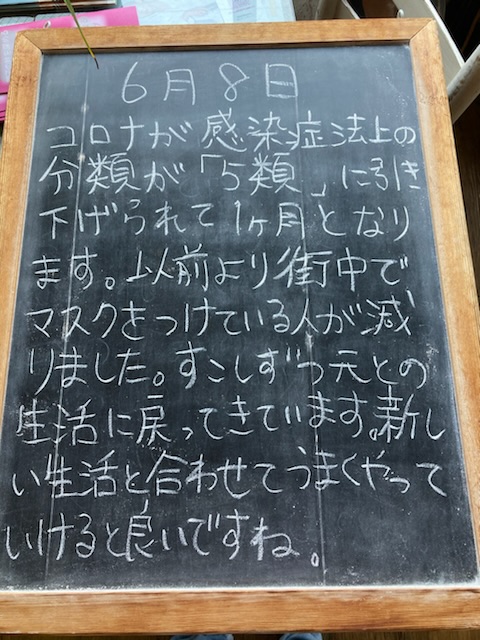 6月8日
コロナが感染症法上の
分類が「5類」に引き
下げられて1ヶ月となり
ます。以前より街中で
マスクをつけている人が減
りました。すこしずつ元との
生活に戻ってきています。新し
い生活と合わせてうまくやって
いけると良いですね。